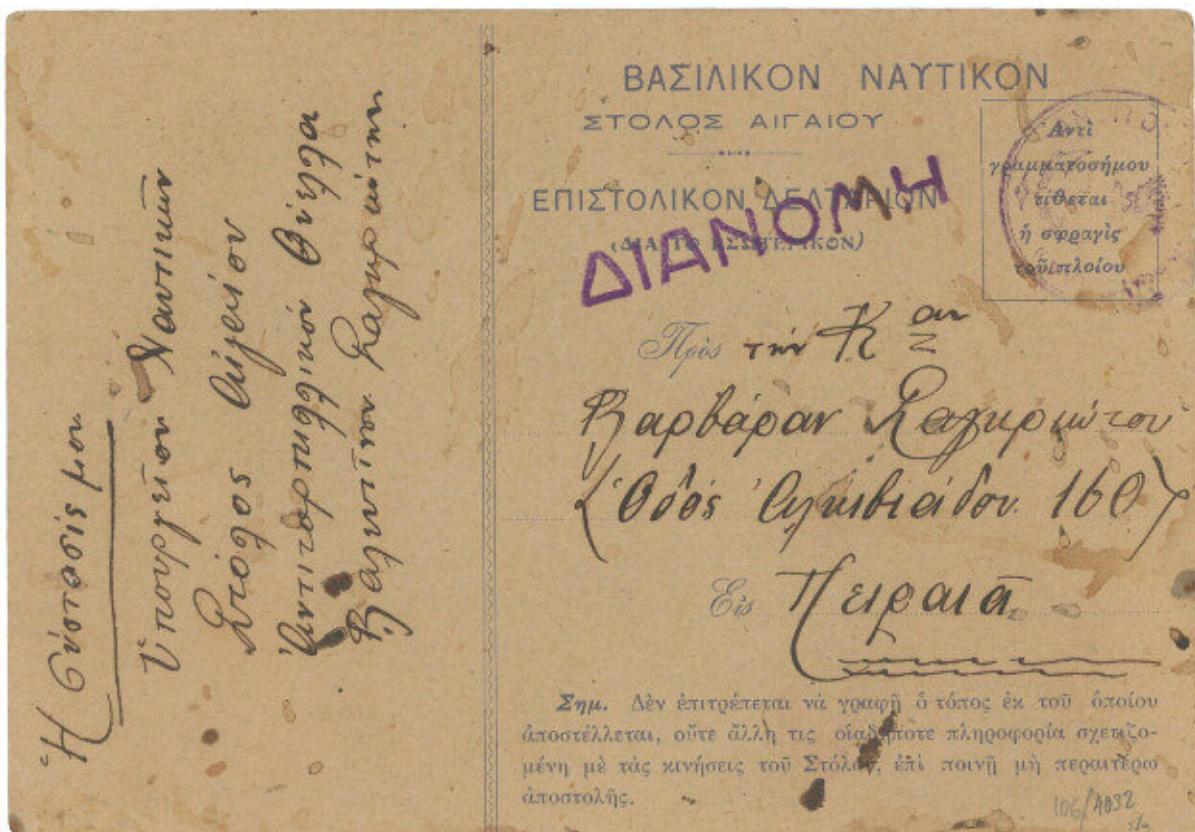 Ἡ σύστασίς μου
Ὑπουργεῖον Ναυτικῶν
Στόλος Αἰγαίου
Ἀντιτορπιλλικόν Θύελλα
ΒΑΣΙΛΙΚΟΝ ΝΑΥΤΙΚΟΝ
ΣΤΟΛΟΣ ΑΙΓΑΙΟΥ
ΕΠΙΣΤΟΛΙΚΟΝ ΔΕΛΤΑΡΙΟΝ
(ΔΙΑ ΤΟ ΕΣΩΤΕΡΙΚΟΝ)
ΔΙΑΝΟΜΗ
Ἀντὶ
γραμματοσήμου
τίθεται
ἡ σφραγὶς
τοῦ πλοίου
Πρὸς τήν Καν
Βαρβάραν
(Ὁδός Ἀλκιβιάδου 160)
Εἰς Πειραιᾶ
Σημ. Δὲν ἐπιτρέπεται νὰ γραφῇ ὁ τόπος ἐκ τοῦ ὁποίου
ἀποστέλλεται, οὔτε ἄλλη τις οἱαδήποτε πληροφορία σχετιζο-
μένη μὲ τὰς κινήσεις τοῦ Στόλου, ἐπὶ ποινῇ μὴ περαιτέρω
ἀποστολῆς.
106/4032